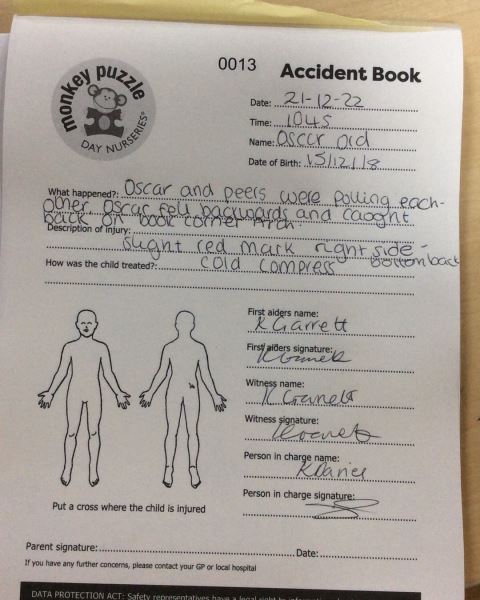 monkey puzzle
DAY NURSERIES®
0013
Accident Book
Date: 21-12-22
Time: 1045
Name: Oscar Ord
Date of Birth: 15/12/18
What happened?: Oscar and peers were polling each-
other. Oscar fell backwards and caught
back on book corner Arch.
Description of Injury:
slight red mark right side -
bottom back
How was the child treated?: cold compress
First aiders name:
K Garrett
First aiders signature:
Witness name:
Witness signature:
Person in charge name:
Person in charge signature:
Put a cross where the child is injured
Parent signature: Date:
If you have any further concerns, please contact your GP or local hospital
DATA PROTECTION ACT: Safety representatives have a legal right to